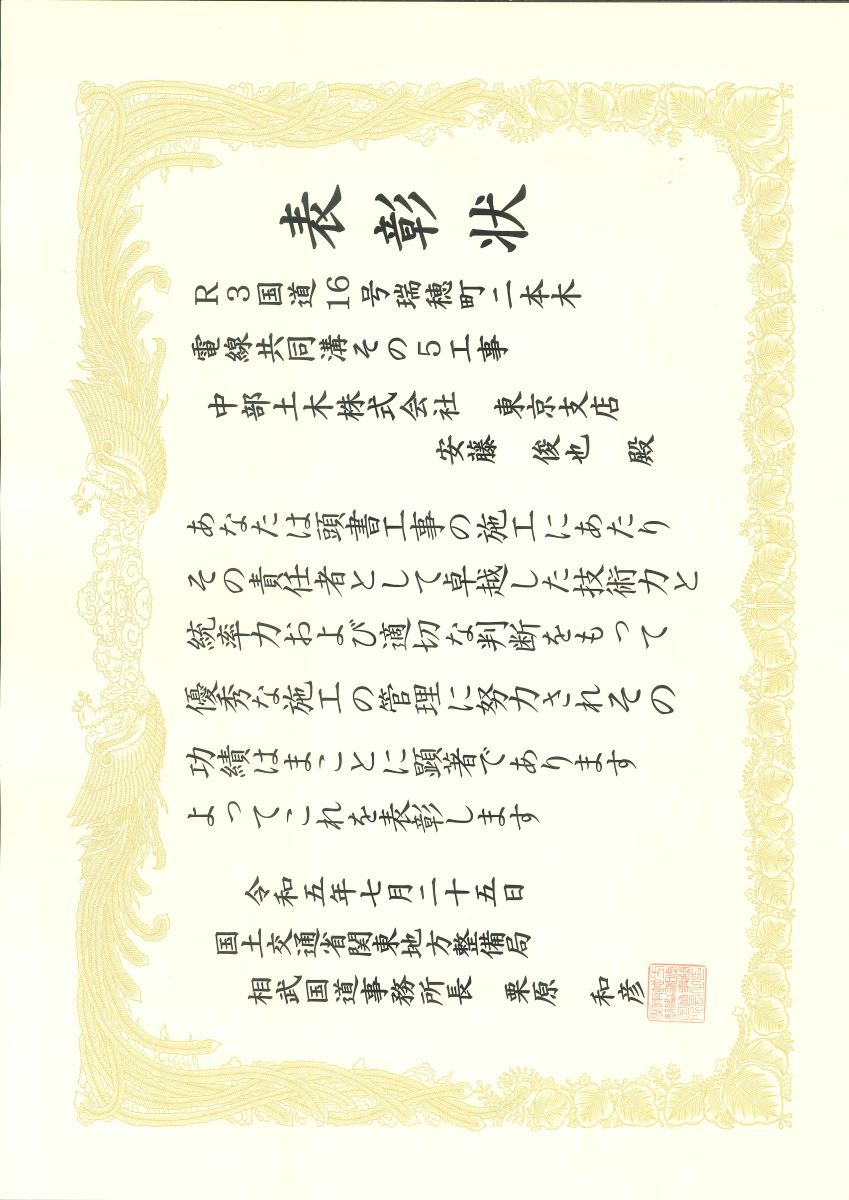 表彰状
R3国道16号瑞穂町二本木
電線共同溝その5工事
中部土木株式会社 東京支店
安藤 俊也 殿
あなたは頭書工事の施工にあたり
その責任者として卓越した技術力と
統率力および適切な判断をもって
優秀な施工の管理に努力されその
功績はまことに顕著であります
よってこれを表彰します
令和五年七月二十五日
国土交通省関東地方整備局
相武国道事務所長 栗原 和彦